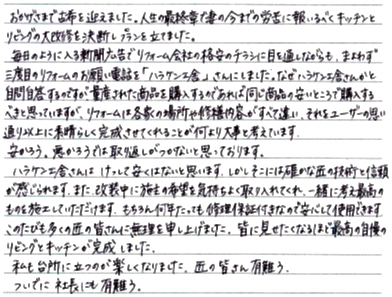 おかげさまで古希を迎えました。人生の最終章で妻の今までの労苦に報いるべくキッチンと
リビングの大改修を決断しプランを立てました。
毎日のように入る新聞広告でリフォーム会社の格安のチラシに目を通しながらも、まよわず
三度目のリフォームのお願い電話を「ハラケン工舎」さんにしました。なぜハラケン工舎さんかと
自問自答するのですが量産された商品を購入するのであれば同じ商品の安いところで購入する
べきと思っていますが、リフォームは各家の場所や修繕内容がすべて違い、それをユーザーの思い
通り以上に素晴らしく完成させてくれることが何より大事と考えています。
安かろう、悪かろうでは取り返しがつかないと思っております。
ハラケン工舎さんは けっして安くはないと思います。しかしそこには確かな匠の技術と信頼
が感じられます。また、改装中に施主の希望を気持ちよく取り入れてくれ、一緒に考え最高の
ものを施工していただけます。もちろん何年たっても修理保証付きなので安心して使用できます。
このたびも多くの匠の皆さんに無理を申し上げました。皆に見せたくなるほど最高の自慢の
リビングとキッチンが完成しました。
私も台所に立つのが楽しくなりました。匠の皆さん有難う。
ついでに 社長にも有難う。